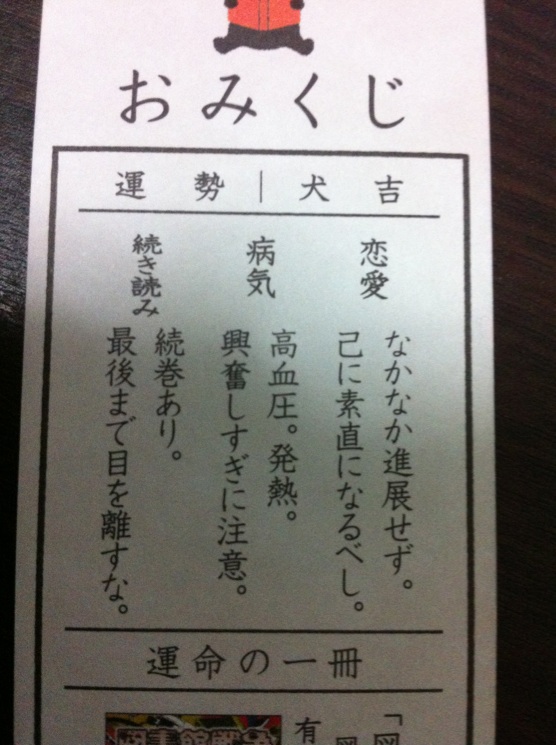 おみくじ
運勢｜犬吉
恋愛
なかなか進展せず。
己に素直になるべし。
病気
高血圧。発熱。
興奮しすぎに注意。
続き読み
続巻あり。
最後まで目を離すな。
運命の一冊
「図
図
有
図書館戦争